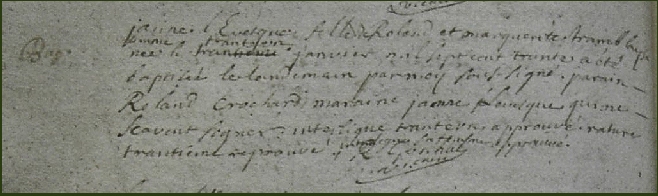 Bap.
janne l'Evesque fille de Roland et marguerite
née le janvier mil sept cent trente a été
baptisée le lendemain par moy sous signé. parain
Roland Crochard maraine janne l'evesque qui ne
scavent signer; interligne trente un approuvé rature
trantieme reprouvé interligne approuvé.